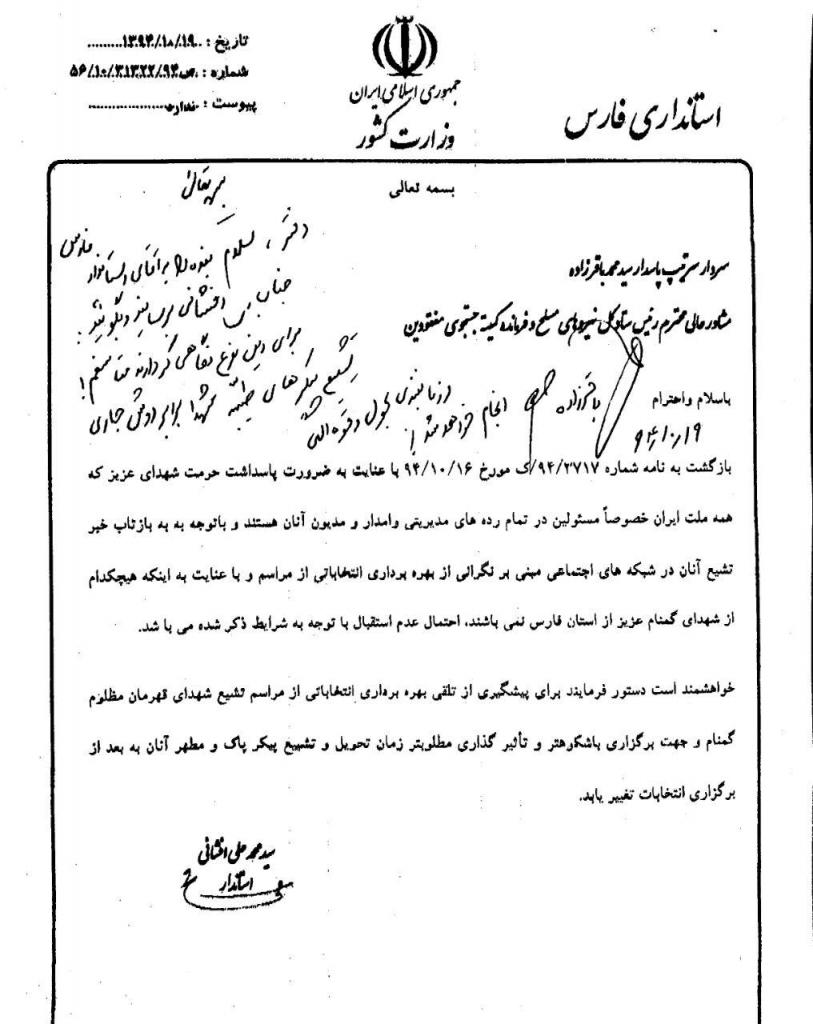 تاریخ : ۱۳۹۴/۱۰/۱۹
شماره : ص/۵۶/۱۰/۳۱۳۲۲/۹۴
پیوست : ندارد
جمهوری اسلامی ایران
وزارت کشور
استانداری فارس
بسمه تعالی
سردار سرتیپ پاسدار سید محمد باقرزاده
مشاور عالی محترم رئیس ستاد کل نیروهای مسلح و فرمانده کمیته جستجوی مفقودین
باسلام واحترام
دفتر، سلام بنده را به آقای استاندار فارس
جناب افشانی برسانید و بگوئید
برای این نوع نگاهی که دارند متأسفم!
تشییع پیکرهای طیبه شهدا برابر روش جاری
و زمانبندی بحول و قوه الهی
انجام خواهد شد!
باقرزاده
۹۴/۱۰/۱۹
بازگشت به نامه شماره ۹۴/۲۷۱۷/ک مورخ ۹۴/۱۰/۱۶ با عنایت به ضرورت پاسداشت حرمت شهدای عزیز که
همه ملت ایران خصوصاً مسئولین در تمام رده های مدیریتی وامدار و مدیون آنان هستند و باتوجه به به بازتاب خبر
تشیع آنان در شبکه های اجتماعی مبنی بر نگرانی از بهره برداری انتخاباتی از مراسم و با عنایت به اینکه هیچکدام
از شهدای گمنام عزیز از استان فارس نمی باشند، احتمال عدم استقبال با توجه به شرایط ذکر شده می با شد.
خواهشمند است دستور فرمایند برای پیشگیری از تلقی بهره برداری انتخاباتی از مراسم تشیع شهدای قهرمان مظلوم
گمنام و جهت برگزاری باشکوهتر و تأثیر گذاری مطلوبتر زمان تحویل و تشییع پیکر پاک و مطهر آنان به بعد از
برگزاری انتخابات تغییر یابد.
سید محمد علی افشانی
استاندار